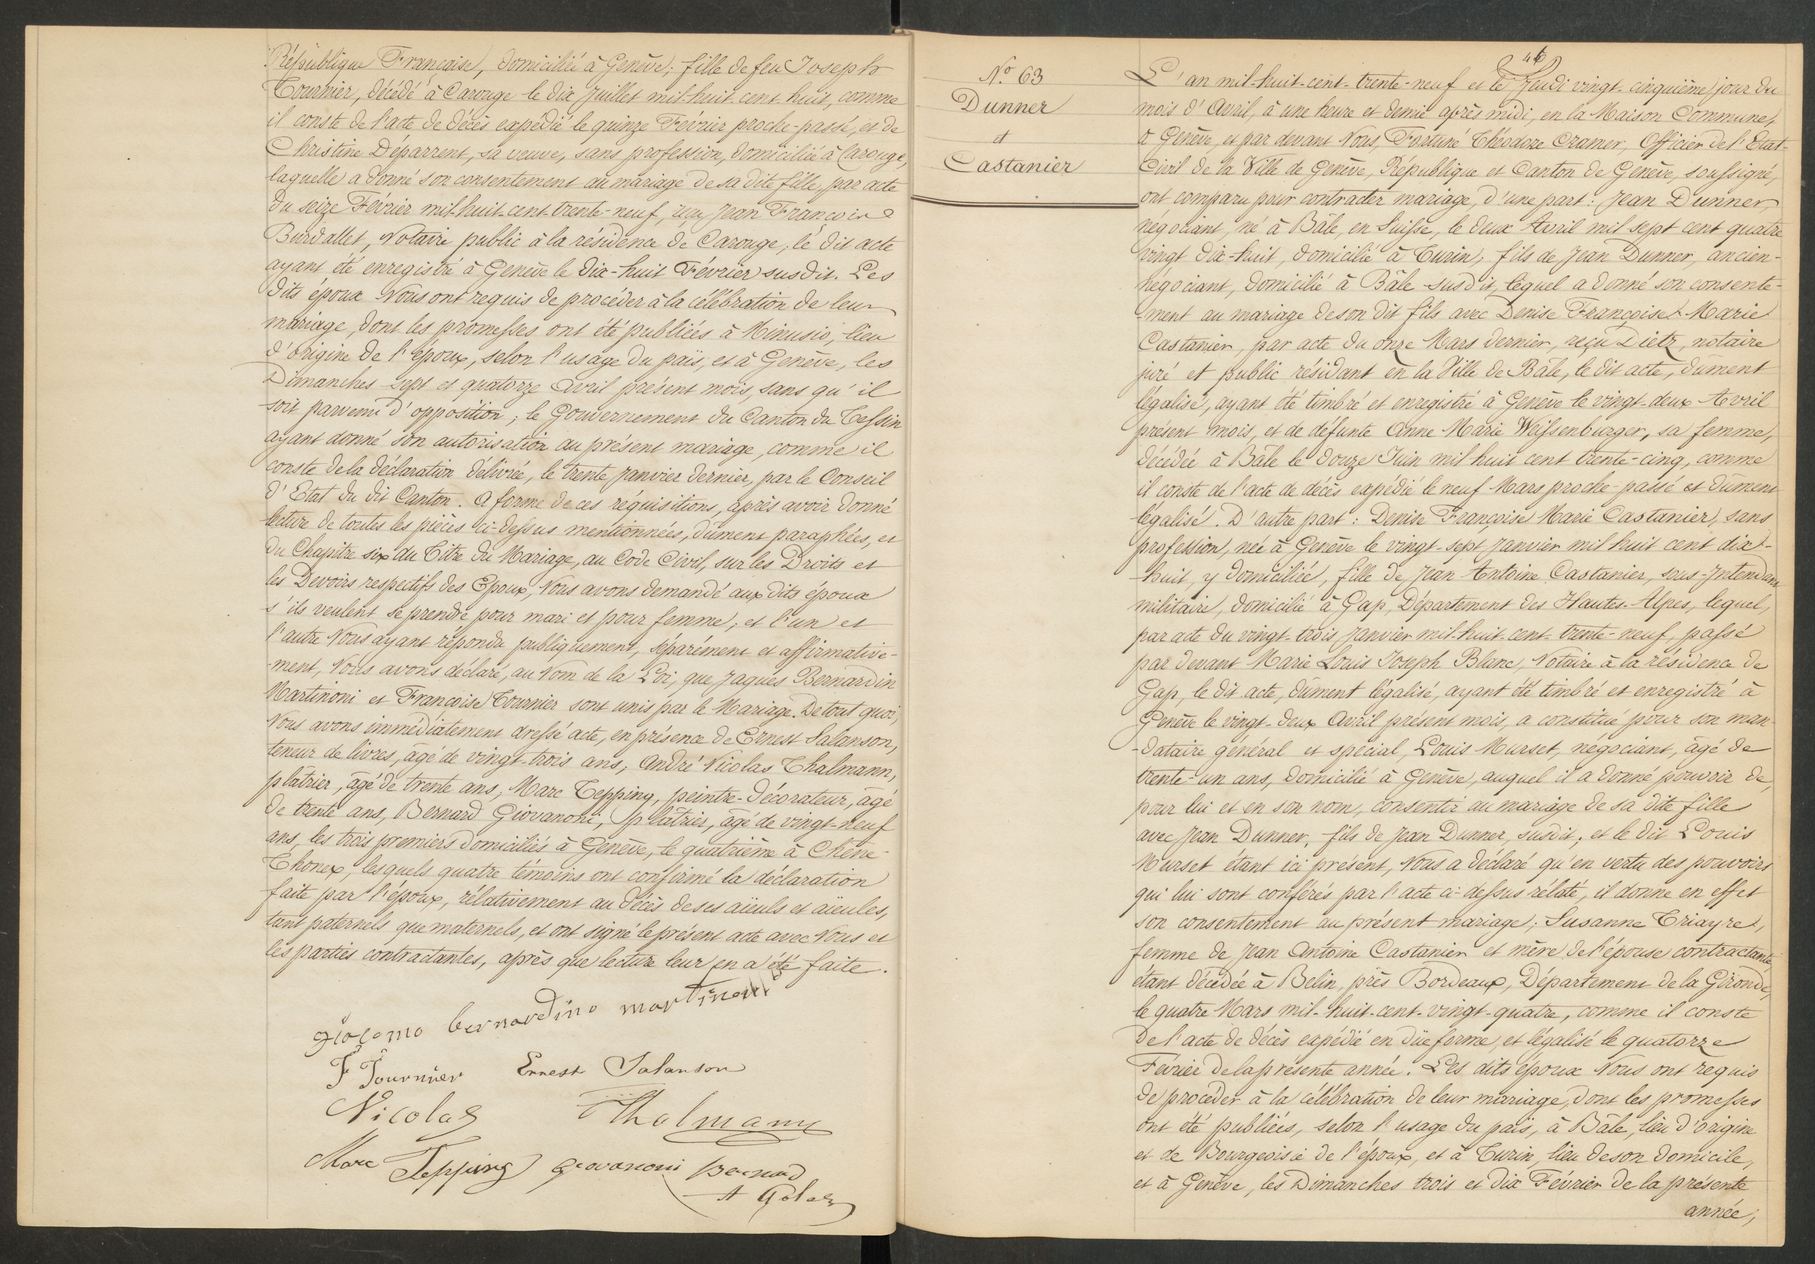 République Française, domiciliée à Genève; fille de feu Joseph
Tournier, décédé à Carouge le dix Juillet mil huit cent huit, comme
il conste de l'acte de décès expédié le quinze Février proche-passé, et de
Christine Déparrent, sa veuve, sans profession, domiciliée à Carouge,
laquelle a donné son consentement au mariage de sa dite fille, par acte
du seize Février mil huit cent trente-neuf, reçu Jean François
Burdallet, Notaire public à la résidence de Carouge, le dit acte
ayant été enregistré à Genève le dix-huit Février susdit. Les
dits époux Nous ont requis de procéder à la célébration de leur
mariage, dont les promesses ont été publiées à Minusio, lieu
d'origine de l'époux, selon l'usage du païs, et à Genève, les
Dimanches sept et quatorze Avril présent mois, sans qu'il
soit parvenu d'opposition; le Gouvernement du Canton du Tessin
ayant donné son autorisation au présent mariage, comme il
conste de la déclaration délivrée, le trente Janvier dernier, par le Conseil
d'Etat du dit Canton. A forme de ces réquisitions, après avoir donné
lecture de toutes les pièces ci-dessus mentionnées, dument paraphées, et
du Chapitre six du Titre du Mariage, au Code Civil, sur les Droits et
les Devoirs respectifs des Epoux, Nous avons demandé aux dits époux
s'ils veulent se prendre pour mari et pour femme; et l'un et
l'autre Nous ayant répondu publiquement, séparément et affirmative-
-ment, Nous avons déclaré, au Nom de la Loi, que Jaques Bernardin
Martinoni et Françoise Tournier sont unis par le Mariage. De tout quoi,
Nous avons immédiatement dressé acte, en présence de Ernest Salanson,
teneur de livres, âgé de vingt-trois ans, André Nicolas Thalmann,
plâtrier, âgé de trente ans, Marc Tepping, peintre-décorateur, âgé
de trente ans, Bernard Giovanoni, plâtrier, âgé de vingt-neuf
ans, les trois premiers domiciliés à Genève, le quatrième à Chêne-
Thonex, lesquels quatre témoins ont confirmé la déclaration
faite par l'époux, rélativement au décès de ses aïeuls et aïeules,
tant paternels que maternels, et ont signé le présent acte avec Nous et
les parties contractantes, après que lecture leur en a été faite.
giacomo bernardino martinoni
F Tournier Ernest Salanson
Nicolas Thalmann
Marc Tepping giovanoni Bernard
46
No 63
Dunner
et
Castanier
L'an mil-huit-cent-trente-neuf et le Jeudi vingt-cinquième jour du
mois d'Avril, à une heure et demie après midi, en la Maison Commune,
à Genève, et par devant Nous, Fortuné Théodore Cramer, Officier de l'Etat-
Civil de la Ville de Genève, République et Canton de Genève, soussigné,
ont comparu pour contracter mariage, d'une part: Jean Dunner,
négociant, né à Bâle, en Suisse, le deux Avril mil sept cent quatre
vingt dix-huit, domicilié à Turin; fils de Jean Dunner, ancien-
négociant, domicilié à Bâle susdit, lequel a donné son consente-
-ment au mariage de son dit fils avec Denise Françoise Marie
Castanier, par acte du onze Mars dernier, reçu Dietz, notaire
juré et public résidant en la Ville de Bâle, le dit acte, dument
légalisé, ayant été timbré et enregistré à Genève le vingt-deux Avril
présent mois, et de défunte Anne Marie Weissenburger, sa femme,
décédée à Bâle le douze Juin mil huit cent trente-cinq, comme
il conste de l'acte de décès expédié le neuf Mars proche passé et dument
légalisé. D'autre part: Denise Françoise Marie Castanier, sans
profession, née à Genève le vingt-sept Janvier mil huit cent dix-
-huit, y domiciliée, fille de Jean Antoine Castanier, sous-Intendant
militaire, domicilié à Gap, Département des Hautes-Alpes, lequel,
par acte du vingt-trois Janvier mil-huit-cent-trente-neuf, passé
par devant Marie Louis Joseph Blanc, Notaire à la résidence de
Gap, le dit acte, dûment légalisé, ayant été timbré et enregistré à
Genève le vingt-deux Avril présent mois, a constitué pour son man-
-dataire général et spécial, Louis Murset, négociant, âgé de
trente-un ans, domicilié à Genève, auquel il a donné pouvoir de,
pour lui et en son nom, consentir au mariage de sa dite fille
avec Jean Dunner, fils de Jean Dunner susdit; et le dit Louis
Murset étant ici présent, Nous a déclaré qu'en vertu des pouvoirs
qui lui sont conférés par l'acte ci-dessus rélaté, il donne en effet
son consentement au présent mariage; Susanne Triayre,
femme de Jean Antoine Castanier et mère de l'épouse contractante
étant décédée à Belin, près Bordeaux, Département de la Gironde,
le quatre Mars mil-huit-cent-vingt-quatre, comme il conste
de l'acte de décès expédié en düe forme, et légalisé le quatorze
Février de la présente année. Les dits époux Nous ont requis
de procéder à la célébration de leur mariage, dont les promesses
ont été publiées, selon l'usage du païs, à Bâle, lieu d'origine
et de Bourgeoisie de l'époux, et à Turin, lieu de son domicile,
et à Genève, les Dimanches trois et dix Février de la présente
année;